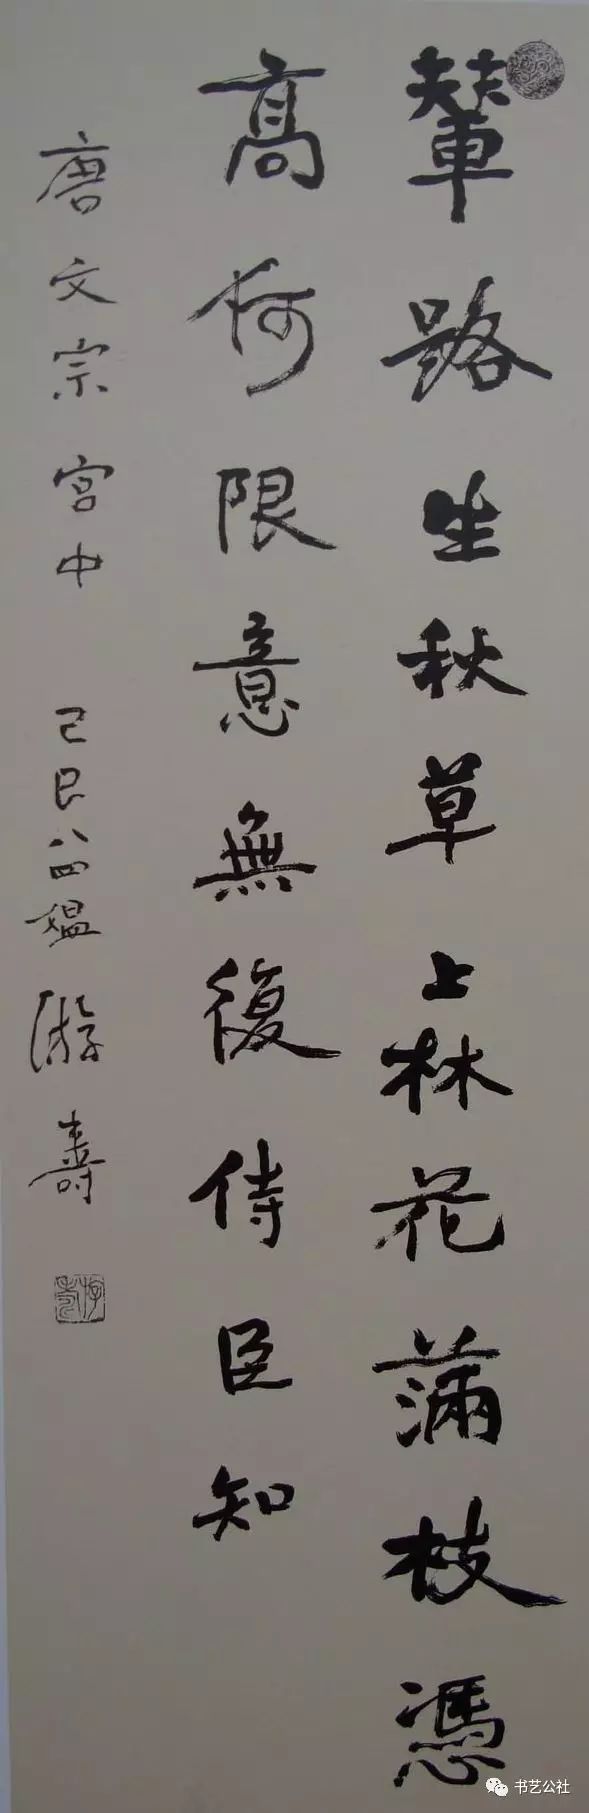 輦路生秋草上林花滿枝憑
高何限意無復侍臣知
唐文宗宮中 己巳八四媪游壽
游壽
书艺公社